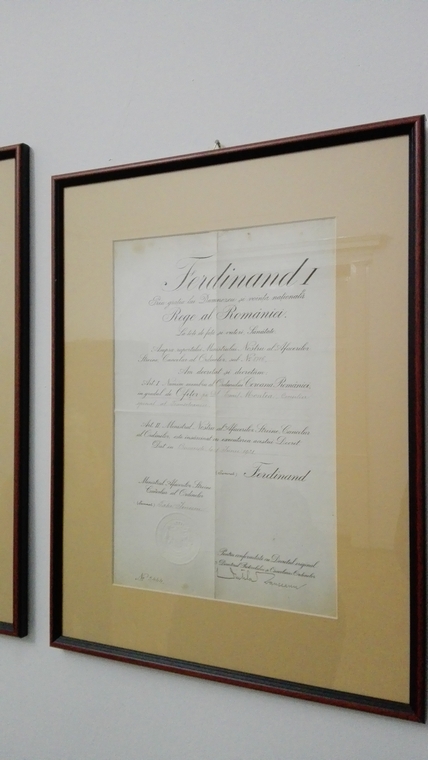 Ferdinand I
Prin grația lui Dumnezeu și voința națională
Rege al României.
La toți de față și viitori Sănătate.
Asupra raportului Ministrului Nostru al Afacerilor
Străine Cancelar al Ordinelor sub No
Am decretat și decretăm:
Art. I Numim membru al Ordinului Coroana României,
în gradul de Ofițer pe D.
Art. II Ministrul Nostru al Afacerilor Străine Cancelar
al Ordinelor, este însărcinat cu executarea acestui Decret
Dat în
Ferdinand
Ministrul Afacerilor Străine
Cancelar al Ordinelor
Pentru conformitate cu Decretul original,
Directorul Protocolului și Cancelariei Ordinelor